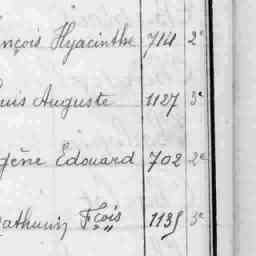 nçois Hyacinthe 714 2e
uis Auguste 1127 3e
gène Edouard 702 2e
athurin Fçois 1135 3e